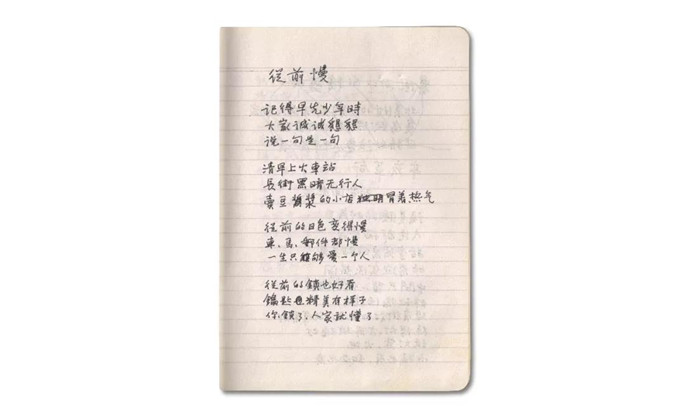 從前慢
记得早先少年時
大家诚诚懇懇
说一句是一句
清早上火車站
長街黑暗无行人
賣豆漿的小店冒着热气
從前的日色变得慢
車、馬、郵件都慢
一生只够爱一个人
從前的鎖也好看
鑰匙精美有样子
你鎖了、人家就懂了